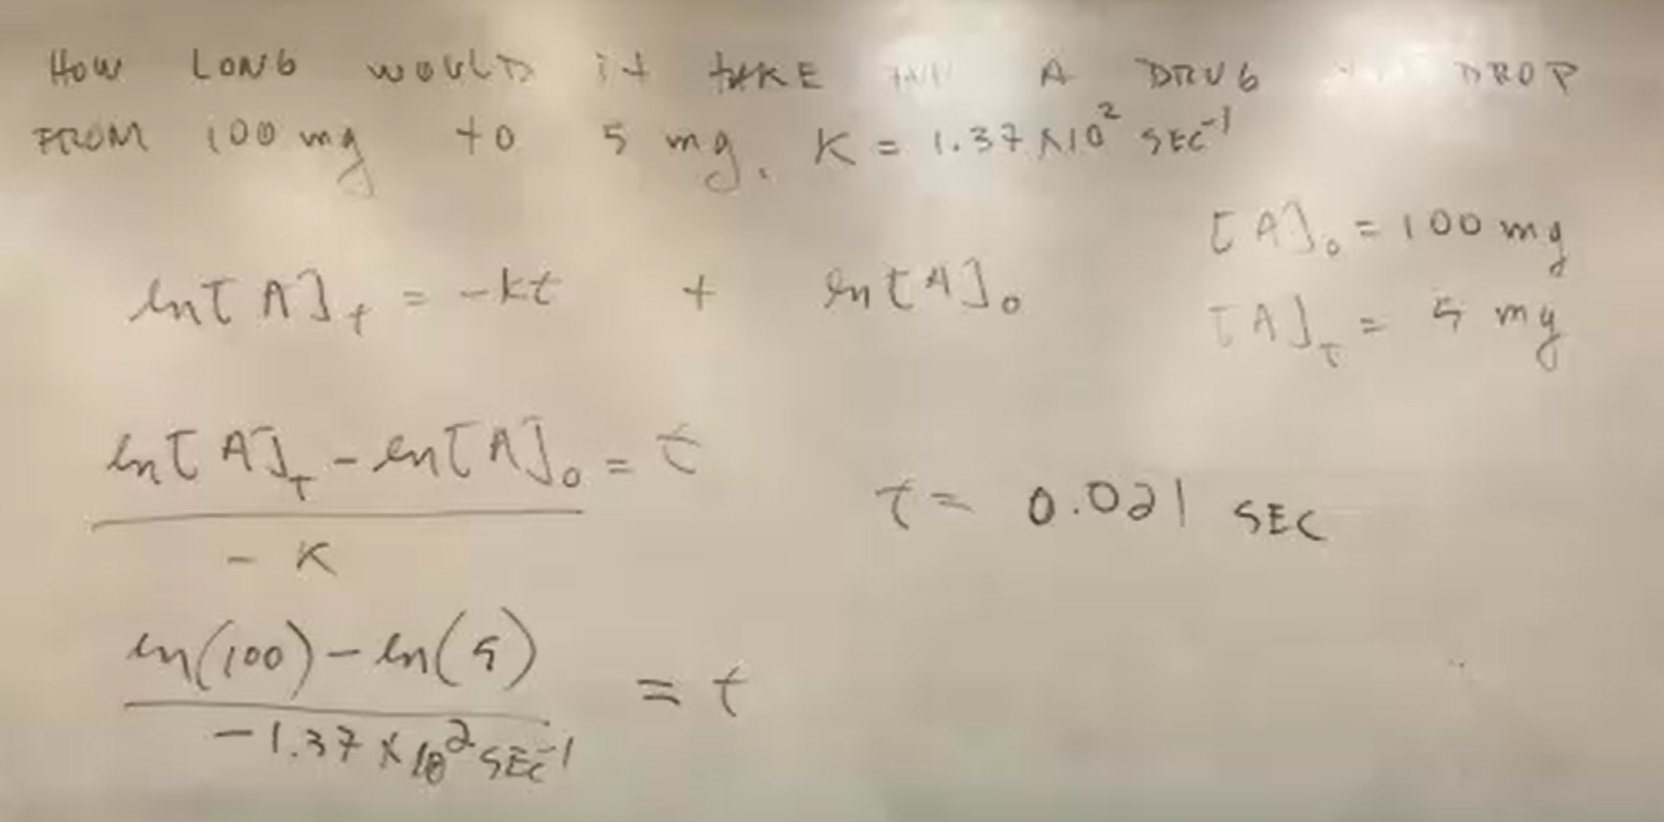 HOW LONG WOULD it tAKE A DRUG DROP
FROM 100 mg to 5 mg. K = 1.37 X10² SEC⁻¹
[A]₀ = 100 mg
ln[A]t = -kt + ln[A]₀
[A]t = 5 mg
ln[A]t - ln[A]₀ = t
- K
t = 0.021 SEC
ln(100) - ln(5) = t
-1.37 X 10² SEC⁻¹